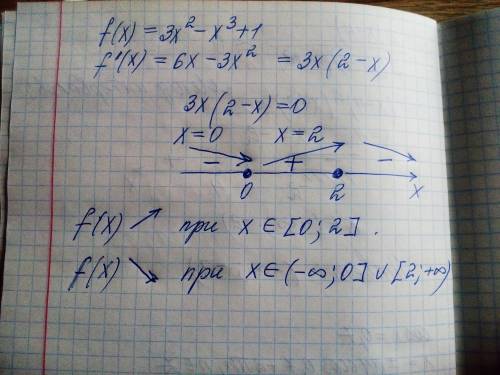 f(x) = 3x² - x³ + 1
f'(x) = 6x - 3x² = 3x(2 - x)
3x(2 - x) = 0
x = 0 x = 2
- + -
0 2 x
f(x) ↗ при x ∈ [0; 2].
f(x) ↘ при x ∈ (-∞; 0] ∪ [2; +∞)